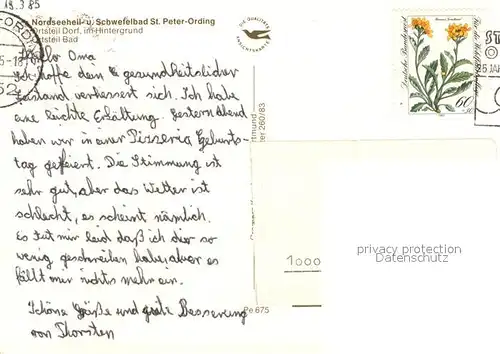 19.3.85
Nordseeheil- u. Schwefelbad St. Peter-Ording
Ortsteil Dorf, im Hintergrund
Ortsteil Bad
DIE QUALITÄTS
ANSICHTSKARTE
Deutsche Bundespost
60
25 JAH
Hallo Oma
Ich hoffe dein gesundheitslicher
zustand verbessert sich. Ich habe
eine leichte Erkaltung. Gestern Abend
haben wir in einer Pizzeria Geburts-
tag gefeiert. Die Stimmung ist
sehr gut, aber das Wetter ist
schlecht, es scheint nämlich.
Es tut mir leid daß ich dir so
wenig geschrieben habe, aber es
fällt mir nichts mehr ein.
Schöne Grüße und gute Besserung
von Thorsten
260/83
1000
Pe 675
privacy protection
Datenschutz